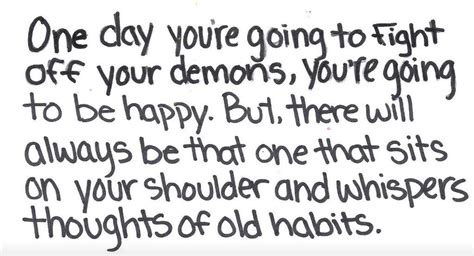 One day you're going to fight
off your demons, you're going
to be happy. But, there will
always be that one that sits
on your shoulder and whispers
thoughts of old habits.